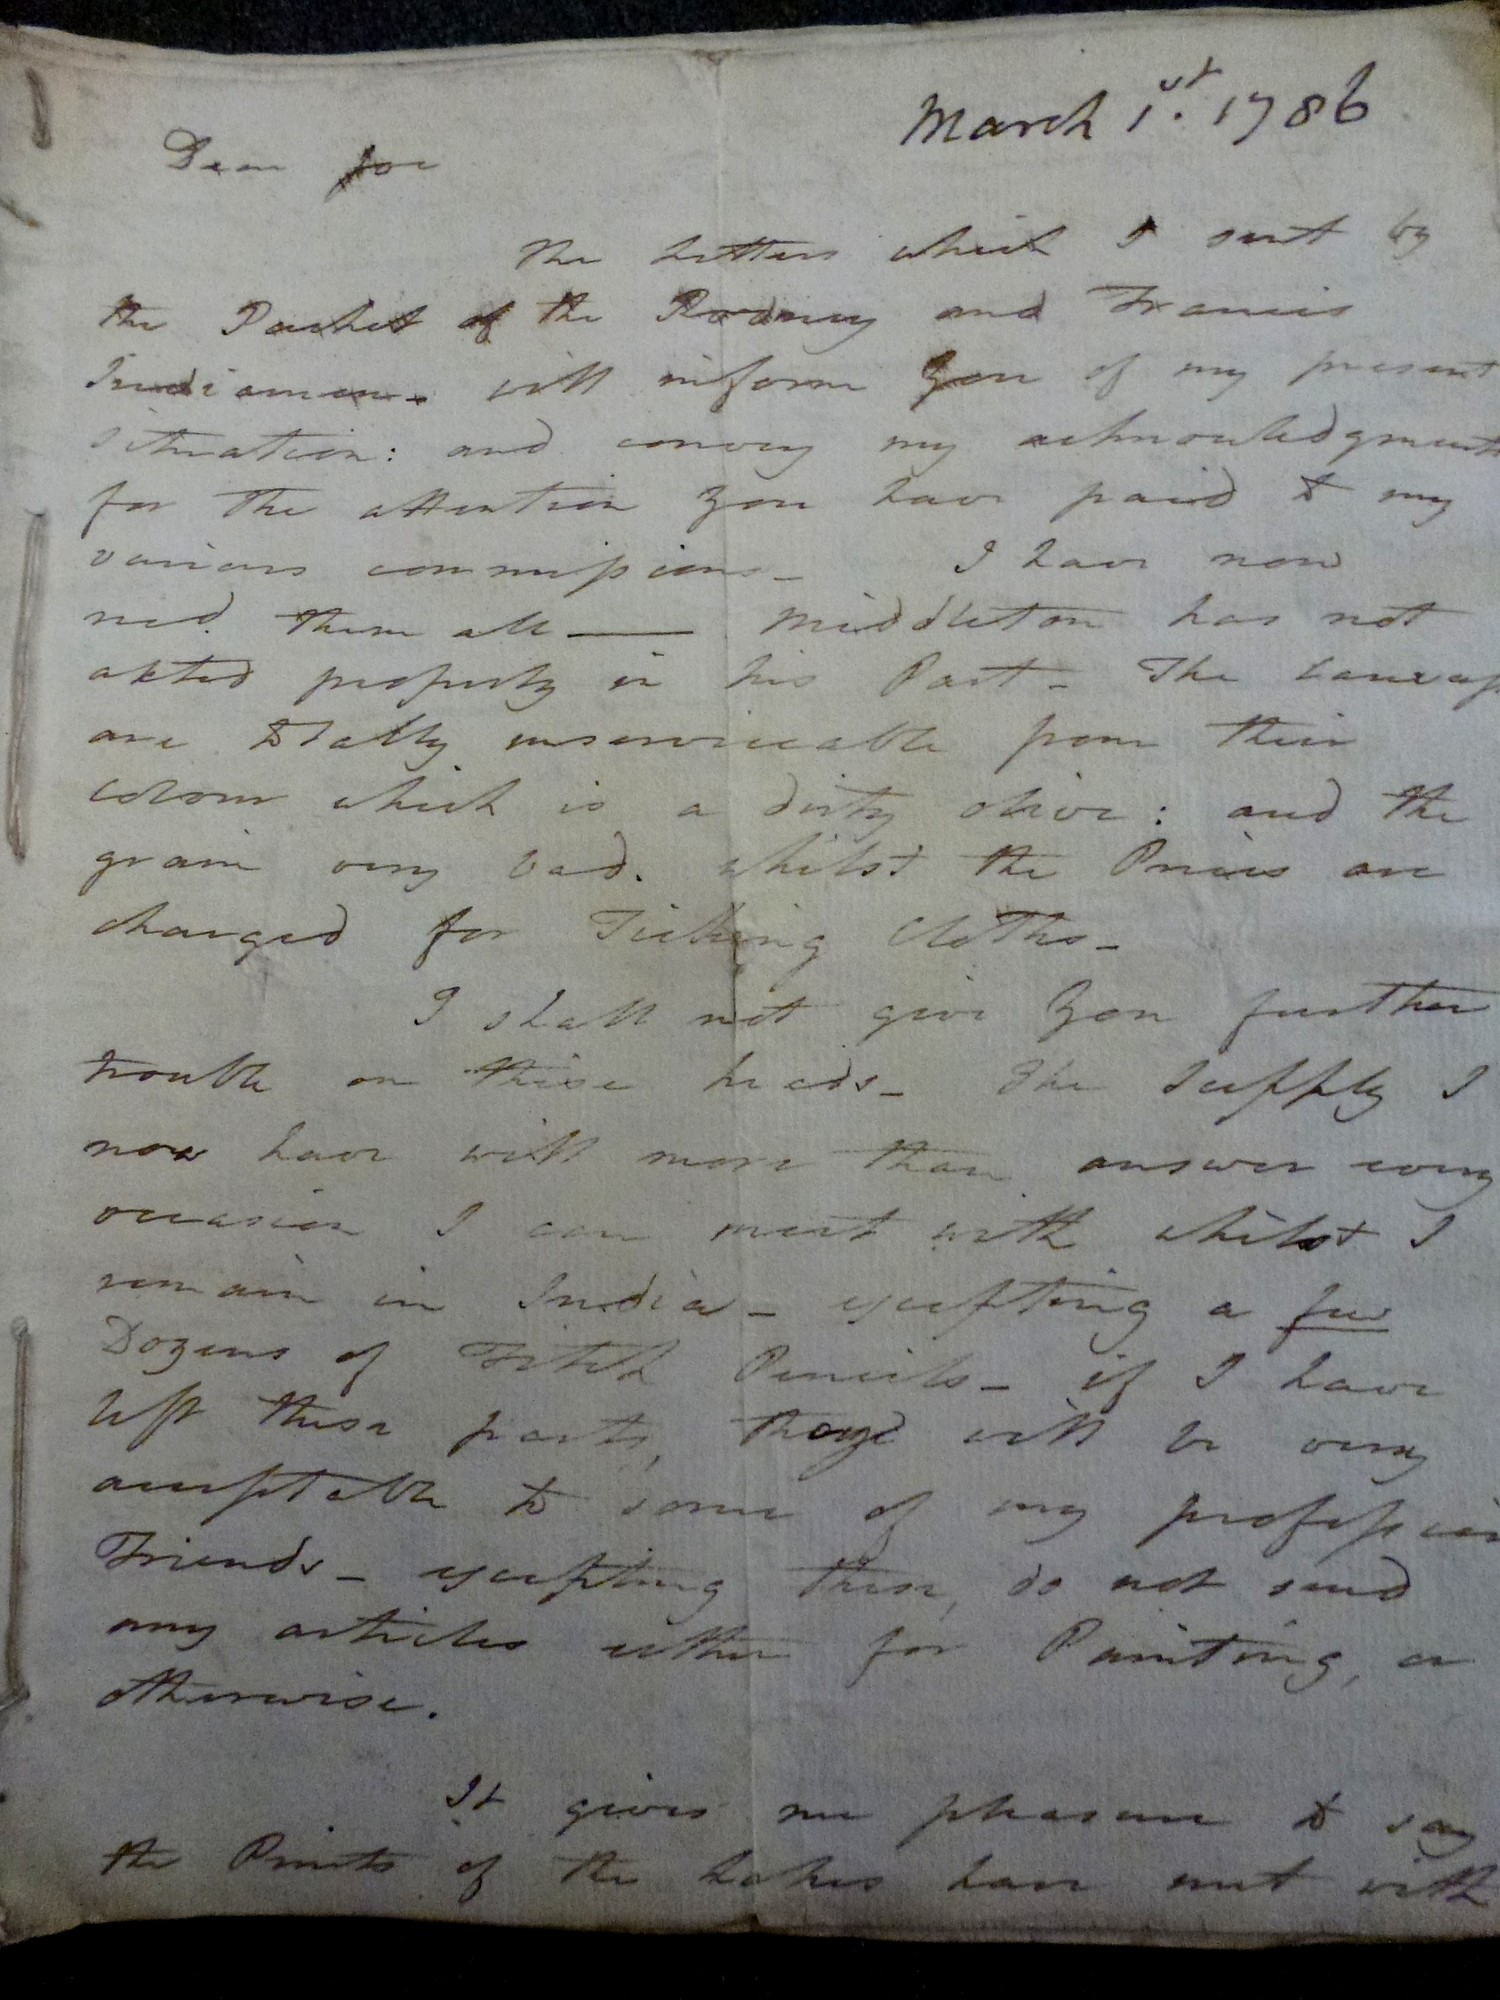 March 1st. 1786
Dear Joe
The Letters which I sent by
the Packet of the Rodney and Francis
Indiamen - will inform You of my present
situation: and convey my acknowledgments
for the attention You have paid to my
various commissions - I have now
recd. them all — Middleton has not
akted properly in his Part - The Canvass
are totally unserviceable from their
Colour which is a dirty olive: and the
grain very bad. whilst the Prices are
charged for Ticking Cloths -
I shall not give You further
trouble on these heads - The Supply I
now have will more than answer every
occasion I can meet with whilst I
remain in India - excepting a few
Dozens of Fitch Pencils - if I have
left these parts, they will be very
acceptable to some of my profession
Friends - excepting these, do not send
any articles either for Painting, or
otherwise.
It gives me pleasure to say
the Prints of the Lakes have met with